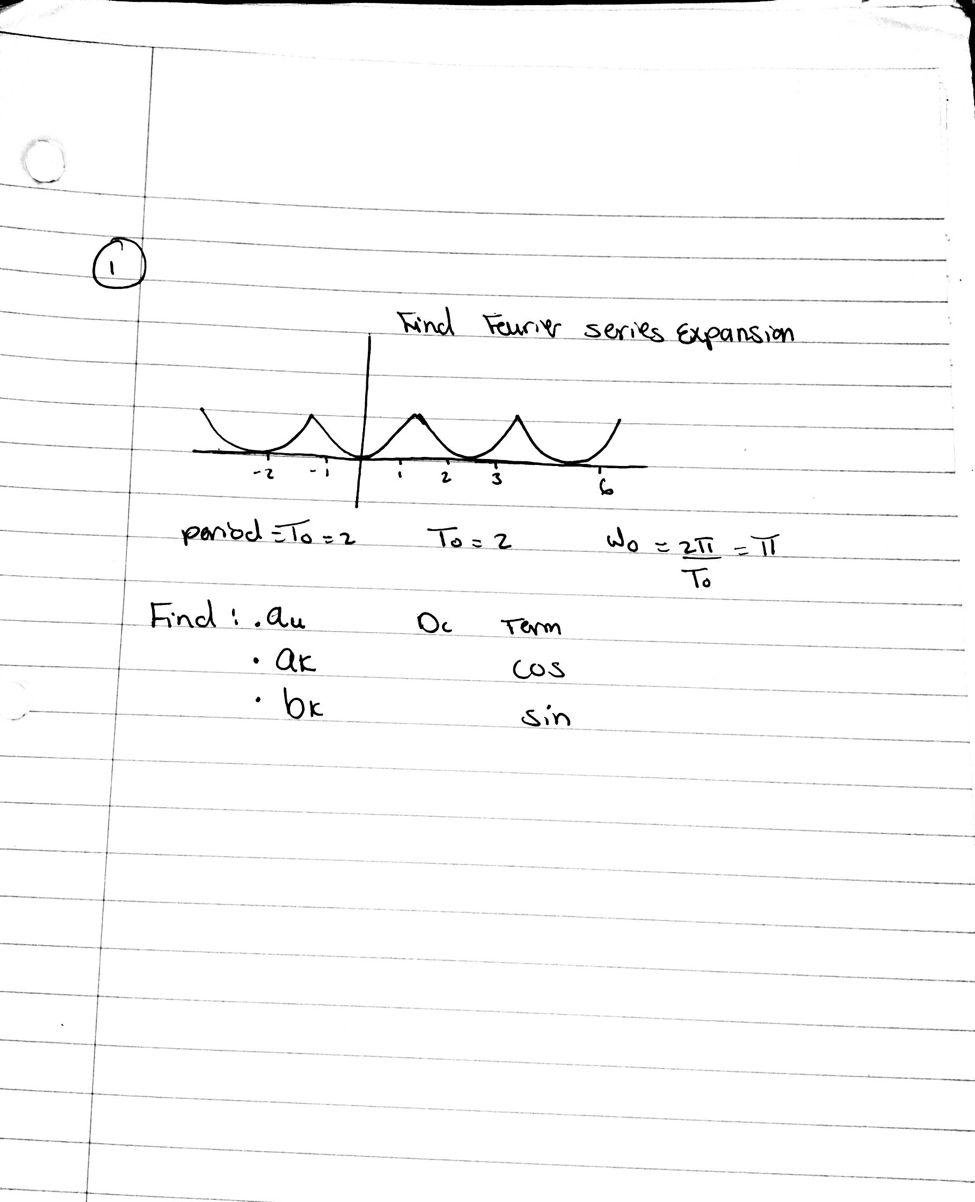 1
Find Feurier series Expansion
-2 -1 1 2 3 6
period = To = 2 To = 2 Wo = 2π/To = π
Find : . au Dc Term
· ak cos
· bk sin